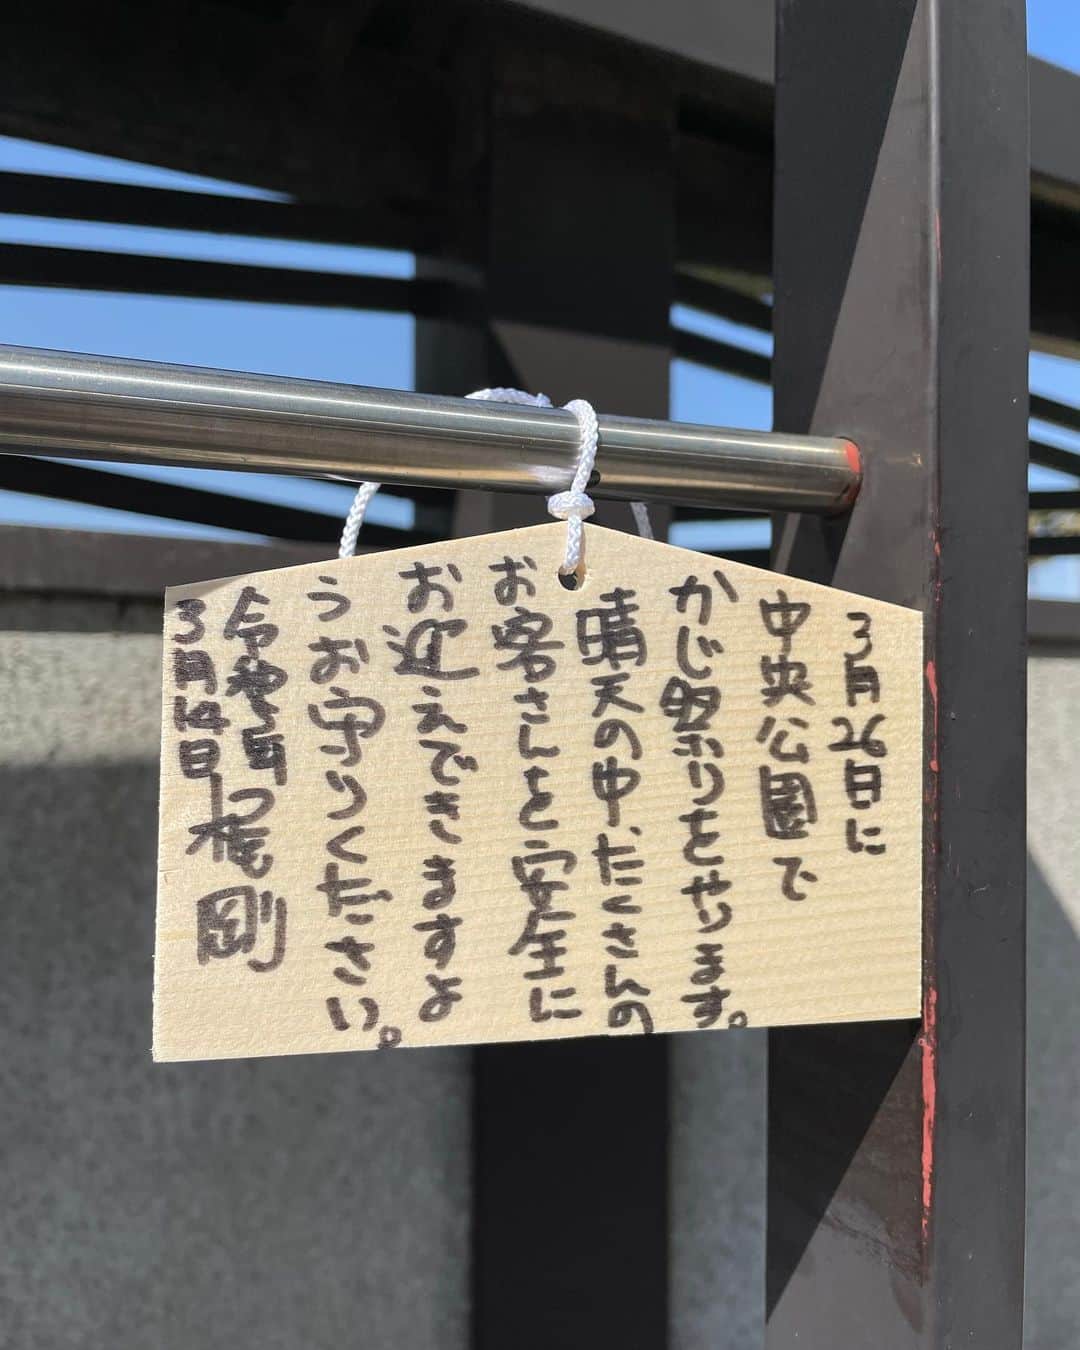 3月26日に
中央公園で
かじ祭りをやります。
晴天の中、たくさんの
お客さんを安全に
お迎えできますよ
うお守りください。
令和
3月14日
梶 剛